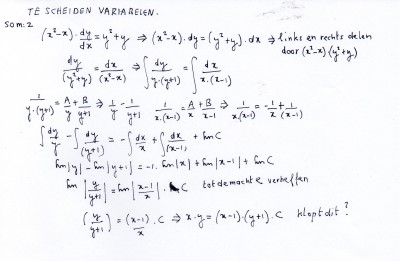 TE SCHEIDEN VARIABELEN.
Som: 2
(x²-x)·dy/dx = y²+y ⇒ (x²-x)·dy = (y²+y)·dx ⇒ links en rechts delen
door (x²-x)(y²+y)
dy/(y²+y) = dx/(x²-x) ⇒ ∫dy/y·(y+1) = ∫dx/x·(x-1)
1/y·(y+1) = A/y + B/y+1 ⇒ 1/y - 1/y+1 1/x·(x-1) = A/x + B/x-1 ⇒ 1/x(x-1) = -1/x + 1/(x-1)
∫dy/y - ∫dy/(y+1) = -∫dx/x + ∫dx/(x-1) + ln C
ln|y| - ln|y+1| = -1·ln|x| + ln|x-1| + ln C
ln|y/y+1| = ln|x-1/x|· C tot de macht e verheffen
(y/y+1) = (x-1)/x · C ⇒ x·y = (x-1)·(y+1)·C klopt dit?